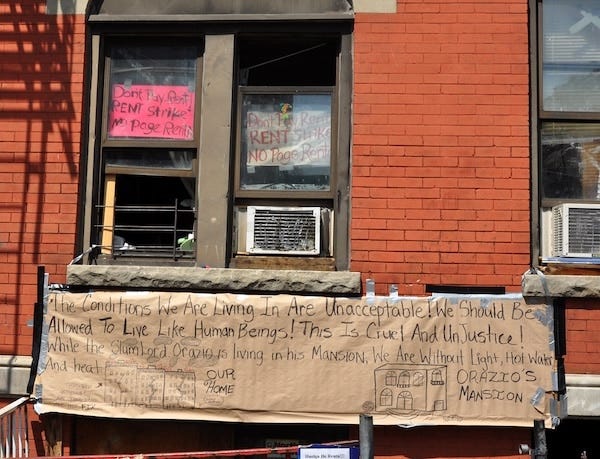 Dont Pay Rent
RENT Strike
No Page Renta
Dont Pay Ren
RENT Strike
NO Page Renta
The Conditions We Are Living In Are Unacceptable! We Should Be
Allowed To Live Like Human Beings! This Is Cruel And UnJustice!
While the Slumlord Orazio is living in his MANSION, We Are Without Light, Hot Water
And heat!
OUR
HOME
ORAZIO'S
MANSION